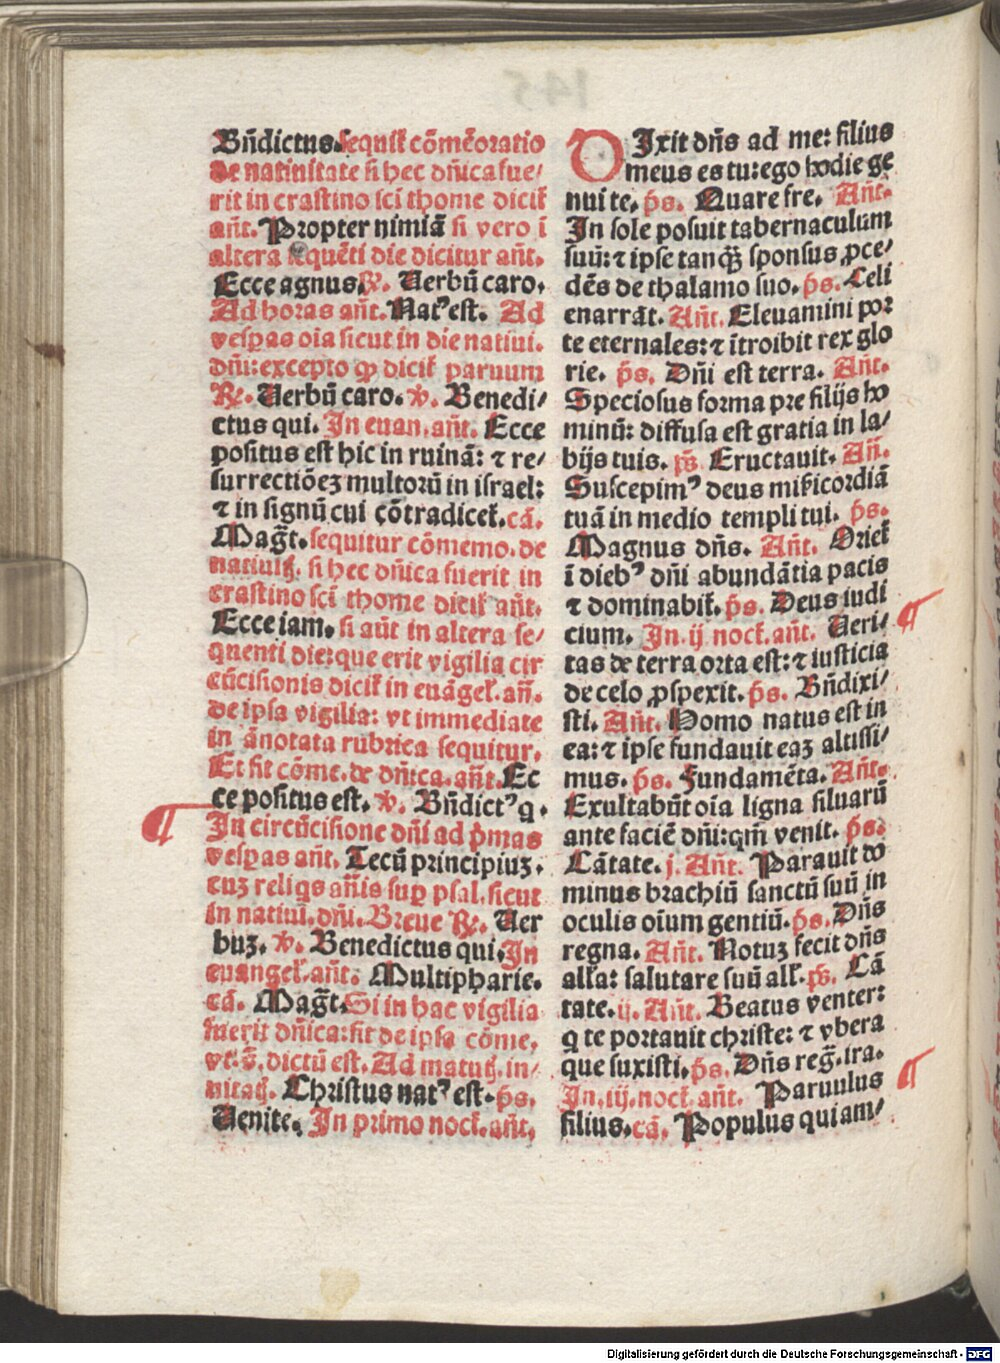 Bñdictus. sequit᷑ cõmẽoratio
de natiuitate si hec dñica fue/
rit in crastino sci thome dicit᷑
añt. Propter nimiã si vero ĩ
altera sequẽti die dicitur añt.
Ecce agnus. ℟. Uerbũ caro.
Ad horas añt. Natꝰ est. Ad
vesꝑas oia sicut in die natiui.
dñi: excepto ꝙ dicit᷑ paruum
℟. Uerbũ caro. ℣. Benedi/
ctus qui. In euan. añt. Ecce
positus est hic in ruinã: ⁊ re/
surrectiõeꝫ multorũ in israel:
⁊ in signũ cui cõtradicet᷑. cã.
Magt̃. sequitur cõmemo. de
natiuitꝭ. si hec dñica fuerit in
crastino sci thome dicit᷑ añt.
Ecce iam. si aũt in altera se/
quenti die: que erit vigilia cir
cũcisionis dicit᷑ in euãgel᷑. añ.
de ipsa vigilia: vt immediate
in ãnotata rubrica sequitur.
Et fit cõme. de dñica. añt. Ec
ce positus est. ℣. Bñdictꝰ q.
¶ In circũcisione dñi ad p̃mas
vesꝑas añt. Tecũ principiuꝫ.
cuꝫ reliqs añis suꝑ psal. sicut
in natiui. dñi. Breue ℟. Uer
buꝫ. ℣. Benedictus qui. In
euangel᷑. añt. Multipharie.
cã. Magt̃. Si in hac vigilia
fuerit dñica: fit de ipsa cõme.
vt. s̃. dictũ est. Ad matutꝭ. in/
uitatꝭ. Christus natꝰ est. p̃s.
Uenite. In primo noct᷑. añt.
DIxit dñs ad me: filius
meus es tu: ego hodie ge
nui te. p̃s. Quare fre. Añt.
In sole posuit tabernaculum
suũ: ⁊ ipse tanqȝ̃ sponsus ꝓce/
dẽs de thalamo suo. p̃s. Celi
enarrãt. Añt. Eleuamini por
te eternales: ⁊ ĩtroibit rex glo
rie. p̃s. Dñi est terra. Añt.
Speciosus forma pre filijs ho
minũ: diffusa est gratia in la/
bijs tuis. p̃s. Eructauit. Añ.
Suscepimꝰ deus mi᷑icordiã
tuã in medio templi tui. p̃s.
Magnus dñs. Añt. Oriet᷑
ĩ diebꝰ dñi abundãtia pacis
⁊ dominabit᷑. p̃s. Deus iudi
cium. In. ij noct᷑. añt. Ueri/ ¶
tas de terra orta est: ⁊ iusticia
de celo ꝓspexit. p̃s. Bñdixi/
sti. Añt. Homo natus est in
ea: ⁊ ipse fundauit eaꝫ altissi/
mus. p̃s. Fundamẽta. Añt.
Exultabũt oĩa ligna siluarũ
ante faciẽ dñi: qm̃ venit. p̃s.
Cãtate. j. Añt. Parauit do
minus brachiũ sanctũ suũ in
oculis oĩum gentiũ. p̃s. Dñs
regna. Añt. Notuꝫ fecit dñs
all᷑a: salutare suũ all᷑. p̃s. Cã
tate. ij. Añt. Beatus venter:
q te portauit christe: ⁊ vbera
que suxisti. p̃s. Dñs reg̃. ira.
In. iij. noct᷑. añt. Paruulus ¶
filius. cã. Populus qui am/
Digitalisierung gefördert durch die Deutsche Forschungsgemeinschaft - DFG